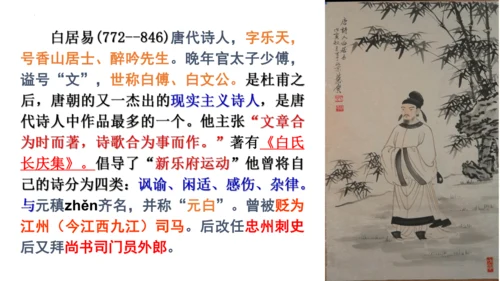 白居易(772--846)唐代诗人，字乐天，
号香山居士、醉吟先生。晚年官太子少傅，
谥号“文”，世称白傅、白文公。是杜甫之
后，唐朝的又一杰出的现实主义诗人，是唐
代诗人中作品最多的一个。他主张“文章合
为时而著，诗歌合为事而作。”著有《白氏
长庆集》。倡导了“新乐府运动”他曾将自
己的诗分为四类：讽谕、闲适、感伤、杂律。
与元稹zhěn齐名，并称“元白”。曾被贬为
江州（今江西九江）司马。后改任忠州刺史
后又拜尚书司门员外郎。